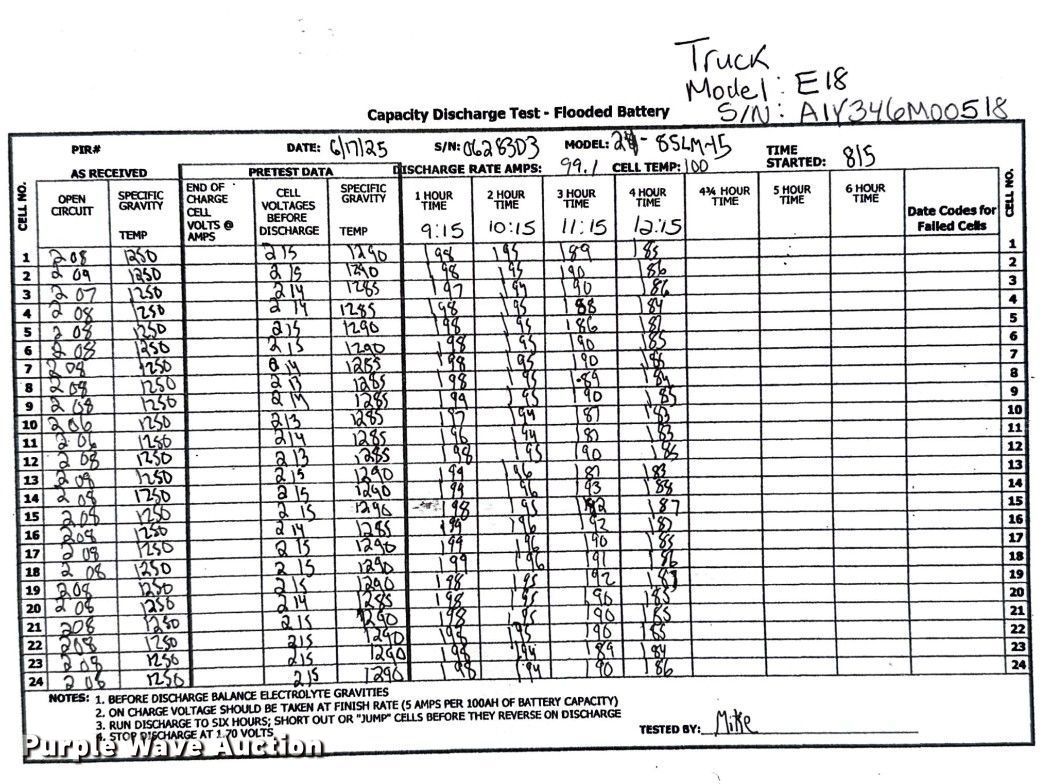 Truck
Model: E18
S/N: A1Y346M00518
Capacity Discharge Test - Flooded Battery
PIR# DATE: 6/17/25 S/N: 06283D3 MODEL: 85LM-15 TIME STARTED: 815
AS RECEIVED PRETEST DATA DISCHARGE RATE AMPS: 99.1 CELL TEMP: 100
CELL NO. OPEN CIRCUIT SPECIFIC GRAVITY TEMP END OF CHARGE CELL VOLTS @ AMPS CELL VOLTAGES BEFORE DISCHARGE SPECIFIC GRAVITY TEMP 1 HOUR TIME 2 HOUR TIME 3 HOUR TIME 4 HOUR TIME 4¾ HOUR TIME 5 HOUR TIME 6 HOUR TIME Date Codes for Failed Cells CELL NO.
9:15 10:15 11:15 12:15
1 2 08 1250 2 15 1290 198 195 189 185 1
2 2 09 1250 2 15 1290 198 195 190 186 2
3 2 07 1250 2 14 1285 197 194 190 186 3
4 2 08 1250 2 14 1285 198 195 188 184 4
5 2 08 1250 2 15 1290 198 195 186 5
6 2 08 1250 2 15 1290 198 195 190 185 6
7 2 08 1250 2 14 1285 198 195 190 7
8 2 08 1250 2 13 1285 198 195 189 184 8
9 2 08 1250 2 14 1285 199 195 190 185 9
10 2 06 1250 2 13 1285 197 194 187 183 10
11 2 06 1250 2 14 1285 196 194 187 183 11
12 2 08 1250 2 13 1285 198 195 190 185 12
13 2 08 1250 2 15 1290 199 196 187 183 13
14 2 08 1250 2 15 1290 199 196 193 188 14
15 2 08 1250 2 15 1290 198 195 192 187 15
16 208 1250 2 14 1285 199 196 192 187 16
17 2 08 1250 2 15 1290 199 196 190 185 17
18 2 08 1250 2 15 1290 199 196 191 186 18
19 208 1250 2 15 1290 198 195 192 187 19
20 2 08 1250 2 14 1285 198 195 190 185 20
21 208 1250 2 15 1290 198 195 190 185 21
22 208 1250 215 1290 198 195 190 185 22
23 2 08 1250 215 1290 198 194 189 184 23
24 2 08 1250 215 1290 198 194 190 186 24
NOTES: 1. BEFORE DISCHARGE BALANCE ELECTROLYTE GRAVITIES
2. ON CHARGE VOLTAGE SHOULD BE TAKEN AT FINISH RATE (5 AMPS PER 100AH OF BATTERY CAPACITY)
3. RUN DISCHARGE TO SIX HOURS; SHORT OUT OR "JUMP" CELLS BEFORE THEY REVERSE ON DISCHARGE
4. STOP DISCHARGE AT 1.70 VOLTS
TESTED BY: Mike
Purple Wave Auction